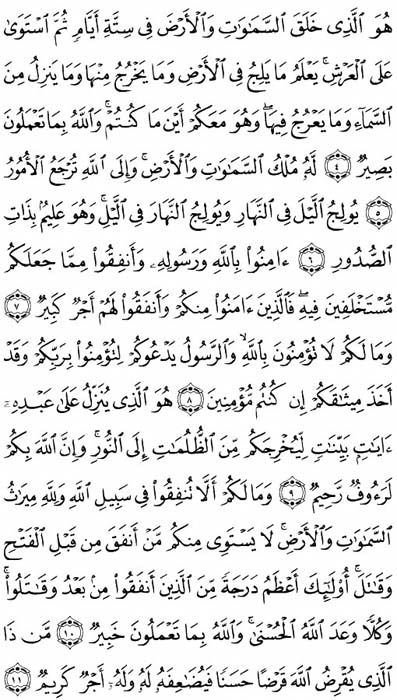 هُوَ ٱلَّذِى خَلَقَ ٱلسَّمَٰوَٰتِ وَٱلْأَرْضَ فِى سِتَّةِ أَيَّامٍۢ ثُمَّ ٱسْتَوَىٰ
عَلَى ٱلْعَرْشِ ۚ يَعْلَمُ مَا يَلِجُ فِى ٱلْأَرْضِ وَمَا يَخْرُجُ مِنْهَا وَمَا يَنزِلُ مِنَ
ٱلسَّمَآءِ وَمَا يَعْرُجُ فِيهَا ۖ وَهُوَ مَعَكُمْ أَيْنَ مَا كُنتُمْ ۚ وَٱللَّهُ بِمَا تَعْمَلُونَ
بَصِيرٌۭ ﴿٤﴾ لَّهُۥ مُلْكُ ٱلسَّمَٰوَٰتِ وَٱلْأَرْضِ ۚ وَإِلَى ٱللَّهِ تُرْجَعُ ٱلْأُمُورُ
﴿٥﴾ يُولِجُ ٱلَّيْلَ فِى ٱلنَّهَارِ وَيُولِجُ ٱلنَّهَارَ فِى ٱلَّيْلِ ۚ وَهُوَ عَلِيمٌۢ بِذَاتِ
ٱلصُّدُورِ ﴿٦﴾ ءَامِنُوا۟ بِٱللَّهِ وَرَسُولِهِۦ وَأَنفِقُوا۟ مِمَّا جَعَلَكُم
مُّسْتَخْلَفِينَ فِيهِ ۖ فَٱلَّذِينَ ءَامَنُوا۟ مِنكُمْ وَأَنفَقُوا۟ لَهُمْ أَجْرٌۭ كَبِيرٌۭ ﴿٧﴾
وَمَا لَكُمْ لَا تُؤْمِنُونَ بِٱللَّهِ ۙ وَٱلرَّسُولُ يَدْعُوكُمْ لِتُؤْمِنُوا۟ بِرَبِّكُمْ وَقَدْ
أَخَذَ مِيثَٰقَكُمْ إِن كُنتُم مُّؤْمِنِينَ ﴿٨﴾ هُوَ ٱلَّذِى يُنَزِّلُ عَلَىٰ عَبْدِهِۦٓ
ءَايَٰتٍۭ بَيِّنَٰتٍۢ لِّيُخْرِجَكُم مِّنَ ٱلظُّلُمَٰتِ إِلَى ٱلنُّورِ ۚ وَإِنَّ ٱللَّهَ بِكُمْ
لَرَءُوفٌۭ رَّحِيمٌۭ ﴿٩﴾ وَمَا لَكُمْ أَلَّا تُنفِقُوا۟ فِى سَبِيلِ ٱللَّهِ وَلِلَّهِ مِيرَٰثُ
ٱلسَّمَٰوَٰتِ وَٱلْأَرْضِ ۚ لَا يَسْتَوِى مِنكُم مَّنْ أَنفَقَ مِن قَبْلِ ٱلْفَتْحِ
وَقَٰتَلَ ۚ أُو۟لَٰٓئِكَ أَعْظَمُ دَرَجَةًۭ مِّنَ ٱلَّذِينَ أَنفَقُوا۟ مِنۢ بَعْدُ وَقَٰتَلُوا۟ ۚ
وَكُلًّۭا وَعَدَ ٱللَّهُ ٱلْحُسْنَىٰ ۚ وَٱللَّهُ بِمَا تَعْمَلُونَ خَبِيرٌۭ ﴿١٠﴾ مَّن ذَا
ٱلَّذِى يُقْرِضُ ٱللَّهَ قَرْضًا حَسَنًۭا فَيُضَٰعِفَهُۥ لَهُۥ وَلَهُۥٓ أَجْرٌۭ كَرِيمٌۭ ﴿١١﴾